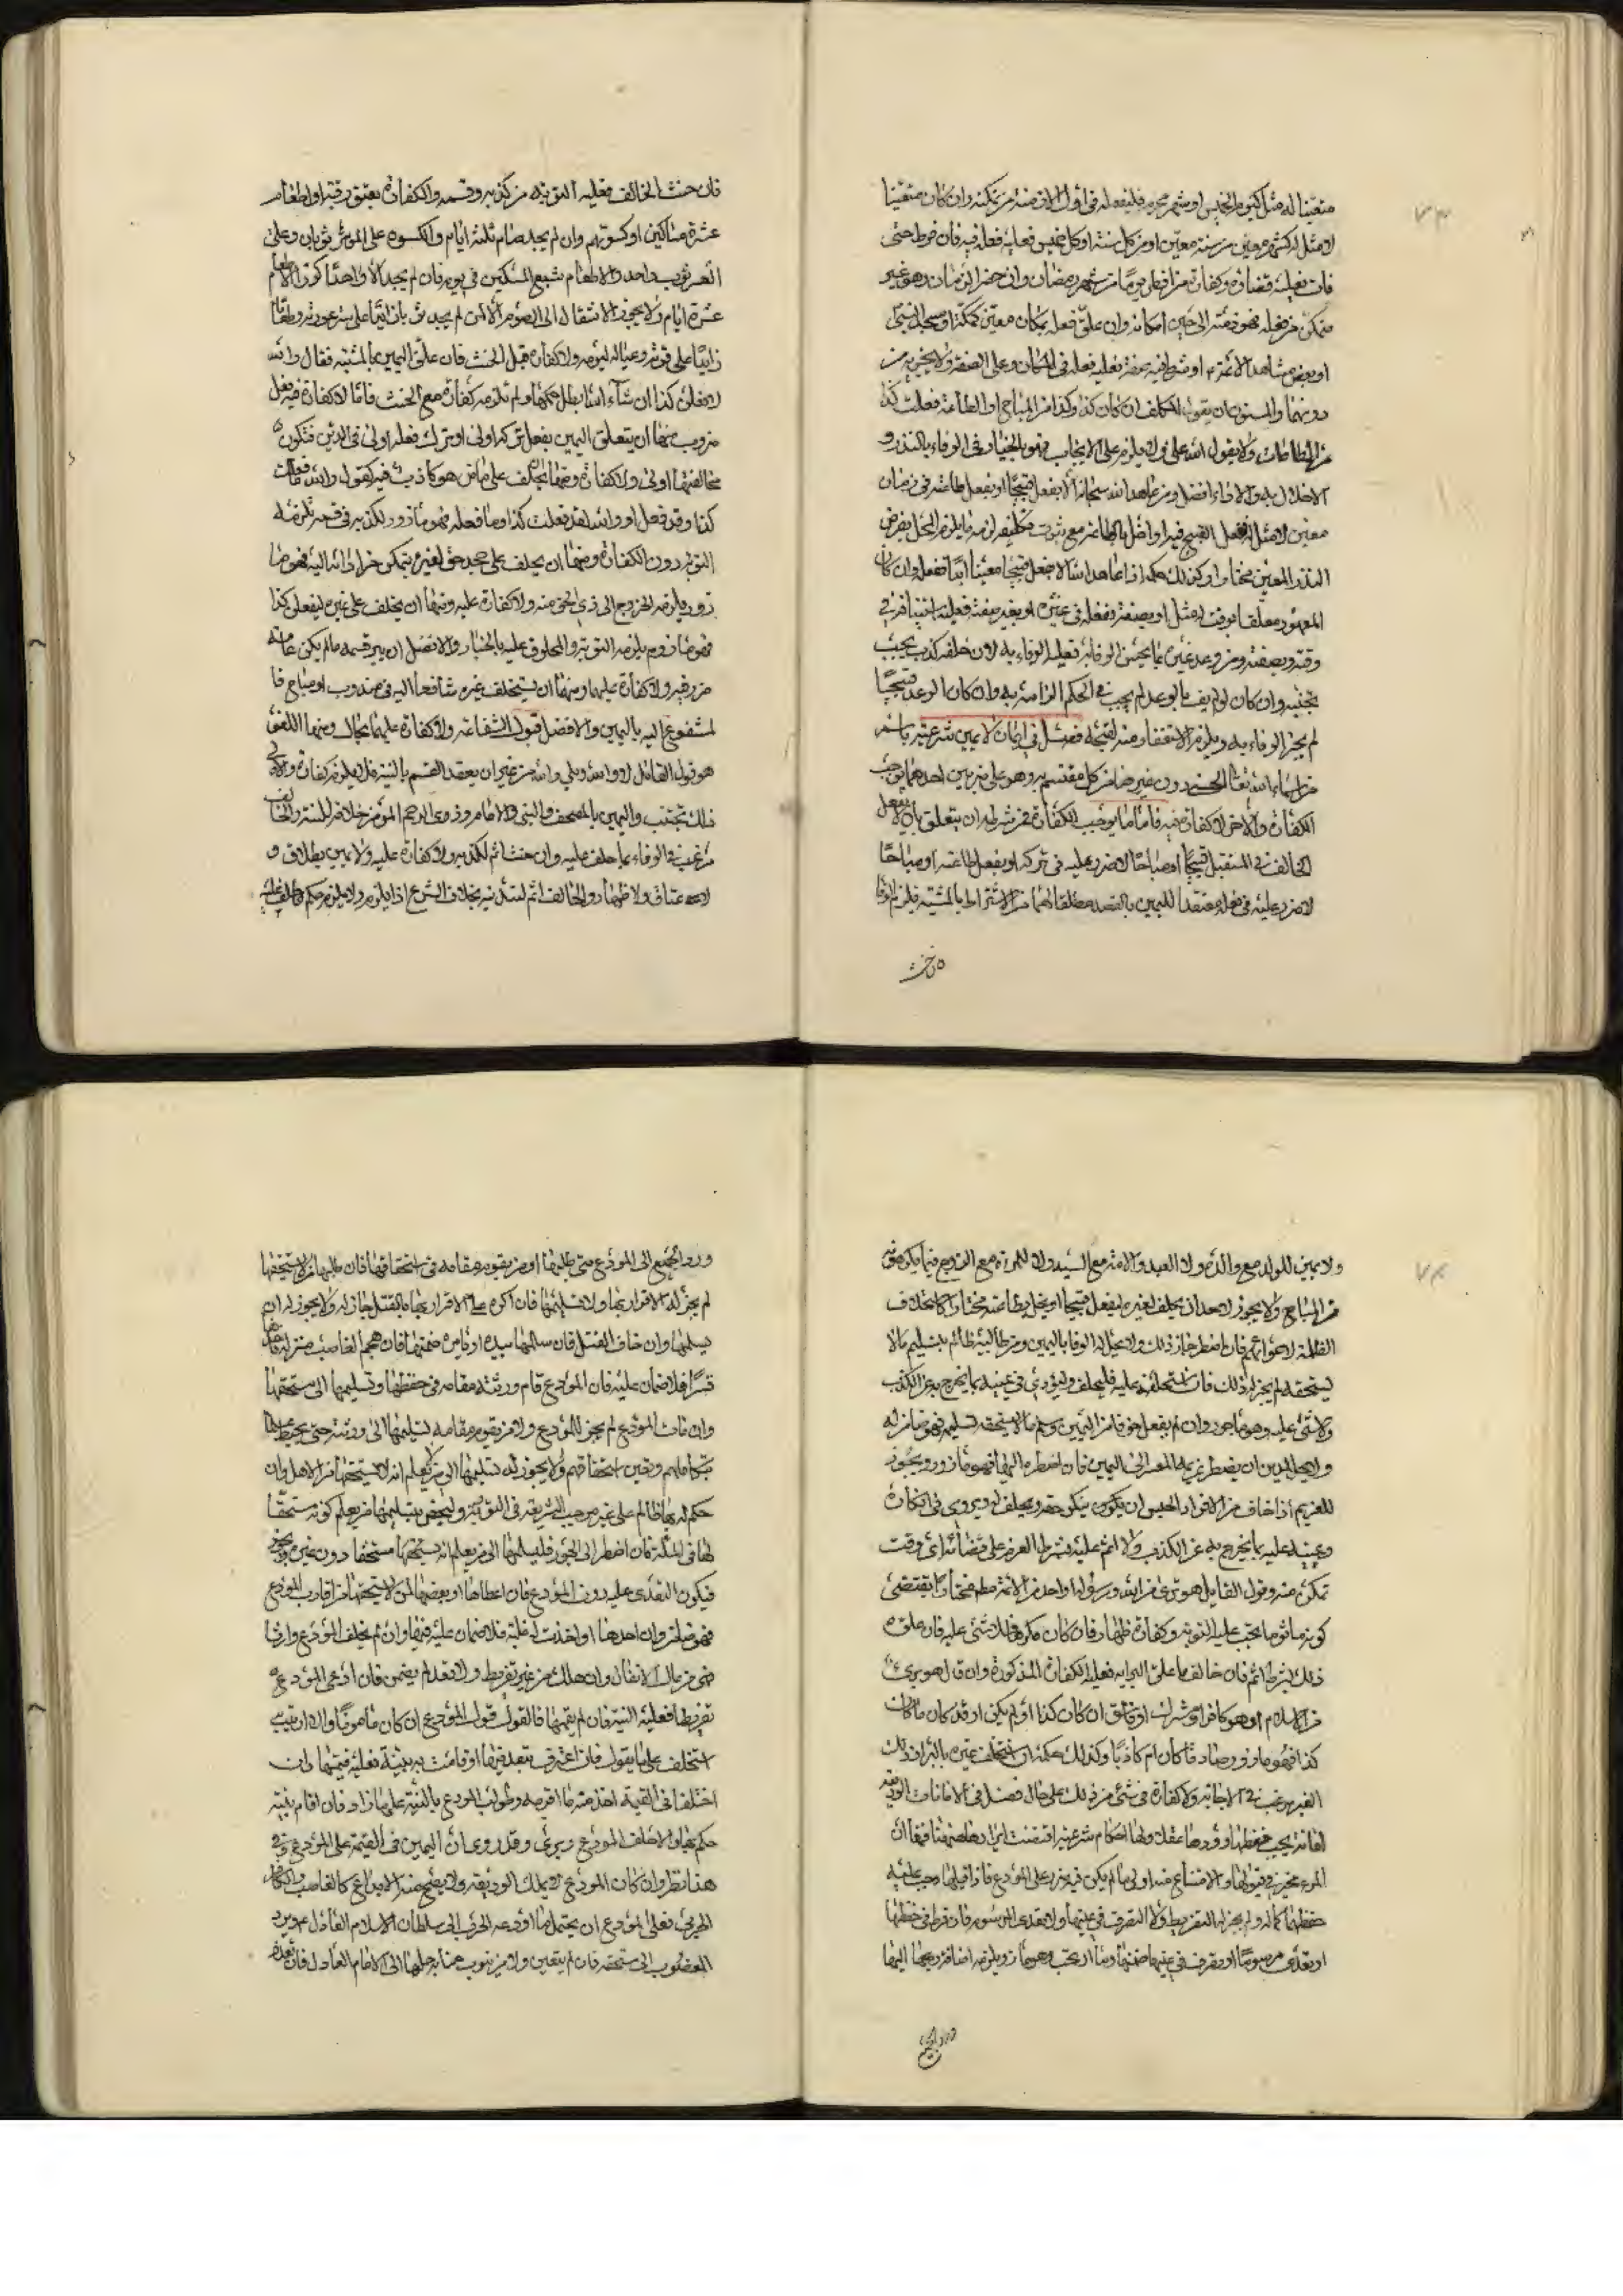 متعينا له مثل كيوم الخميس او شهر محرم فليفعله في اول الازمنة من تمكنه وان كان متعينا
لا مثل له كشهر معين من سنة معين او من كل سنة او كل خميس فعليه فعله فيه فان فرط حتى
فات فعليه قضاؤه وكفارة من افطر يوما من شهر رمضان وان حضر الزمان وهو غير
متمكن من فعله فهو في ذمته الى حين امكانه وان علق فعله بمكان معين كمكة او مسجد النبي
او بعض مشاهد الائمة او شرط فيه صفة فعليه فعله في المكان وعلى الصفة ولا يجزيه من
دونهما والمسنون ان يقول المكلف ان كان كذا وكذا من المباح او الطاعة فعلت كذا
من الطاعات ولا يقول لله علي ولا يلزم على الايجاب فهو بالخيار في الوفاء بالنذر و
الاخلال به والاداء افضل ومن عاهد الله سبحانه الا يفعل قبيحا او يفعل طاعة في زمان
معين لا مثل له ففعل القبيح فيه او اخل بالطاعة مع ثبوت تكليفه لزمه ما يلزم المخل بفرض
النذر المعين مختارا وكذلك حكمه اذا عاهد الله الا يفعل قبيحا معينا ابدا ففعله وان كان
المعهود معلقا بوقت له مثل او بصفة ففعله في غيره او بغير صفته فعليه استينافه في
وقته وبصفته ومن وعد غيره بما يحسن الوفا به فعليه الوفاء به لان خلفه كذب يجب
تجنبه وان كان لو لم يف بالوعد لم يجب في الحكم الزامه به وان كان الوعد قبيحا
لم يجز الوفاء به ويلزم الاستغفار منه لقبحه فصل في ايمان لا يمين شرعية باسم
من اسماء الله تعالى الحسنى دون غيرها من كل مقسم به وهو على ضربين احدهما يوجب
الكفارة والاخر لا كفارة فيه فاما ما يوجب الكفارة فمن شرطه ان يتعلق بان لا يفعل
الحالف في المستقبل قبيحا او مباحا لا ضرر عليه في تركه او يفعل طاعة او مباحا
لا ضرر عليه في فعله معتقدا لليمين بالقصد مطلقا لهما من الاشتراط بالمشية فيلزم الوفا
فان حنث
فان حنث الحالف فعليه التوبة من كذبه وقسمه والكفارة بعتق رقبة او اطعام
عشرة مساكين او كسوتهم وان لم يجد صام ثلثة ايام والكسوة على الموسر ثوبان وعلى
المعسر ثوب واحد والاطعام شبع المسكين في يومه فان لم يجد الا واحدا كرر الاطعام
عشرة ايام ولا يجوز الانتقال الى الصوم الا لمن لم يجد ثوبا زايدا على ستر عورته وطعاما
زايدا على قوته وعياله ليومه ولا كفارة قبل الحنث فان علق اليمين بالمشية فقال والله
لافعلن كذا ان شاء الله بطل حكمها ولم تلزمه كفارة مع الحنث فاما لا كفارة فيه فعلى
ضروب منها ان يتعلق اليمين بفعل تركه اولى او ترك فعله اولى في الدين فتكون
مخالفتها اولى ولا كفارة ومنها ان يحلف على ماض هو كاذب فيه كقوله والله ما فعلت
كذا وقد فعل او والله لقد فعلت كذا وما فعله فهو مأزور لكذبه في قسمه تلزمه
التوبة دون الكفارة ومنها ان يحلف على جحد حق لغيره يتمكن من ادائه اليه فهو ما
زور ويلزمه الخروج الى ذي الحق منه ولا كفارة عليه ومنها ان يحلف على غيره ليفعلن كذا
فهو مأزور يلزمه التوبة والمحلوف عليه بالخيار والافضل ان يبر قسمه ما لم يكن عامة
من رقيه ولا كفارة عليها ومنها ان يستحلف غيره شافعا اليه في مندوب او مباح فا
لمشفوع اليه باليمين والافضل قبول الشفاعة ولا كفارة عليهما بحال ومنها اللغو
هو قول القائل لا والله وبلى والله من غير ان يعقد القسم بالنية فلا يلزم كفارة والاولى
ذلك تجتنب واليمين بالمصحف والنبي والامام وذوي الرحم المؤمن خلاف للسنة والحالف
مرغب في الوفاء بما حلف عليه وان حنث اثم لكذبه ولا كفارة عليه ولا يمين بطلاق و
لا عتاق ولا ظهار والحالف اثم لتدينه بخلاف الشرع اذا يلزم ولا يلزم حكم ما حلف عليه
ولا يمين للولد مع والده ولا العبد والامة مع السيد ولا للمراة مع الزوج فيما يكرهونه
من المباح ولا يجوز لاحد ان يحلف لغيره ليفعل قبيحا او يخل بطاعة مختارا كاستحلاف
الظلمة لاعوانهم فان اضطر جاز ذلك ولا يحل له الوفا باليمين ومن طالبه ظالم بتسليم ما لا
يستحقه لم يجز له ذلك فان استحلفه عليه فليحلف وليوري في يمينه بما يخرج به عن الكذب
ولا شيء عليه وهو مأجور وان لم يفعل خوفا من اليمين وسلم ما لا يستحقه تسليمه فهو ضامن له
ولا يحل لمدين ان يضطر غريمه المعسر الى اليمين فان اضطره اليها فهو مأزور ويجوز
للغريم اذا خاف من الاقرار الحبس ان ينكر حقه ويحلف له ويوري في انكاره
ويمينه عليه بما يخرج به عن الكذب ولا اثم عليه بشرط العزم على قضائه اي وقت
تمكن منه وقول القايل هو بريء من الله ورسوله او واحد من الائمة مختارا يقتضي
كونه مأثوما يجب عليه التوبة وكفارة ظهار فان كان مكرها فلا شيء عليه فان علقه
ذلك بشرط اثم فان خالف ما علق البراءة به فعليه الكفارة المذكورة وان قال هو بريء
من الاسلام او هو كافر او مشرك او فاسق ان كان كذا او لم يكن او قد كان ما كان
كذا فهو مأزور صادقا كان ام كاذبا وكذلك حكمه ان استحلف غيره بالبراءة ذلك
الغير مرغب في الاجابة ولا كفارة في شيء من ذلك على حال فصل في الامانات الوديعة
امانة يجب حفظها وردها عقلا ولها احكام شرعية اقتضت ايرادها هاهنا منها ان
المرء مخير في قبولها والامتناع منه اولى ما لم يكن فيه ضرر على المودع فاذا قبلها وجب عليه
حفظها كماله ولم يجز له التفريط ولا التصرف في عينها ولا تعدى المرسوم فان فرط في حفظها
او تعدى مرسوما او تصرف في عينها ضمنها وما اربحت وهو مأزور ويلزمه اضافة ربحها اليها
ورد الجميع
ورد الجميع الى المودع متى طلبها او من يقوم مقامه في استحقاقها فان طلبها من لا يستحقها
لم يجز له الاقرار بها ولا تسليمها فان اكره على الاقرار بها بالقتل جاز له ولا يجوز له ان
يسلمها وان خاف القتل فان سلمها بيده او بامره ضمنها فان هجم الغاصب منزله فاخذها
قسرا فلا ضمان عليه فان المودع قام ورثته مقامه في حفظها وتسليمها الى مستحقها
وان مات المودع لم يجز للمودع ولا من يقوم مقامه تسليمها الى ورثته حتى يحيط علما
بتكاملهم وتعين استحقاقهم ولا يجوز له تسليمها الى من لا يعلم انه يستحقها من الاهل وان
حكم له بها ظالم على غير موجب الشريعة في التوريث وليخص بتسليمها من يعلم كونه مستحقا
لها في الملة فان اضطر الى الجور فليسلمها الى من يعلم انه يستحقها مستحقا دون غيره
فيكون التعدي عليه دون المودع فان اعطاها او بعضها لمن لا يستحقها من اقارب المودع
فهو ضامن وان احدها او اخذت له غلبة فلا ضمان عليه فيها وان لم يخلف المودع وارثا
فهي من مال الانفال وان هلك من غير تفريط ولا تعد لم يضمن فان ادعى المودع
تفريطا فعليه البينة فان لم يقمها فالقول قول المودع ان كان مأمونا والا
استحلف على ما يقول فان اعترف بتعد فيها او قامت به بينة فعليه قيمتها وان
اختلفا في القيمة اخذ منه ما اقر به وطولب المودع بالبينة على ما زاد فان اقام بينة
حكم بها والا حلف المودع وبرئ وقد روي ان اليمين في القيمة على المودع وفي
هذا نظر وان كان المودع لا يملك الوديعة ولا يصح منه الايداع كالغاصب والكافر
الحربي فعلى المودع ان يحتمل ما اودعه الحربي الى سلطان الاسلام العادل ويرد
المغصوب الى مستحقه فان لم يتعين ولا من ينوب عنابه حملها الى الامام العادل فان تعذر